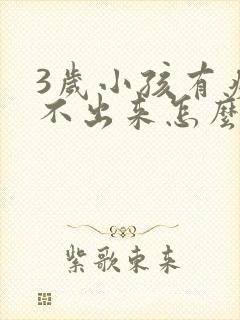 3歲小孩有
不出来怎麼
紫歌東来